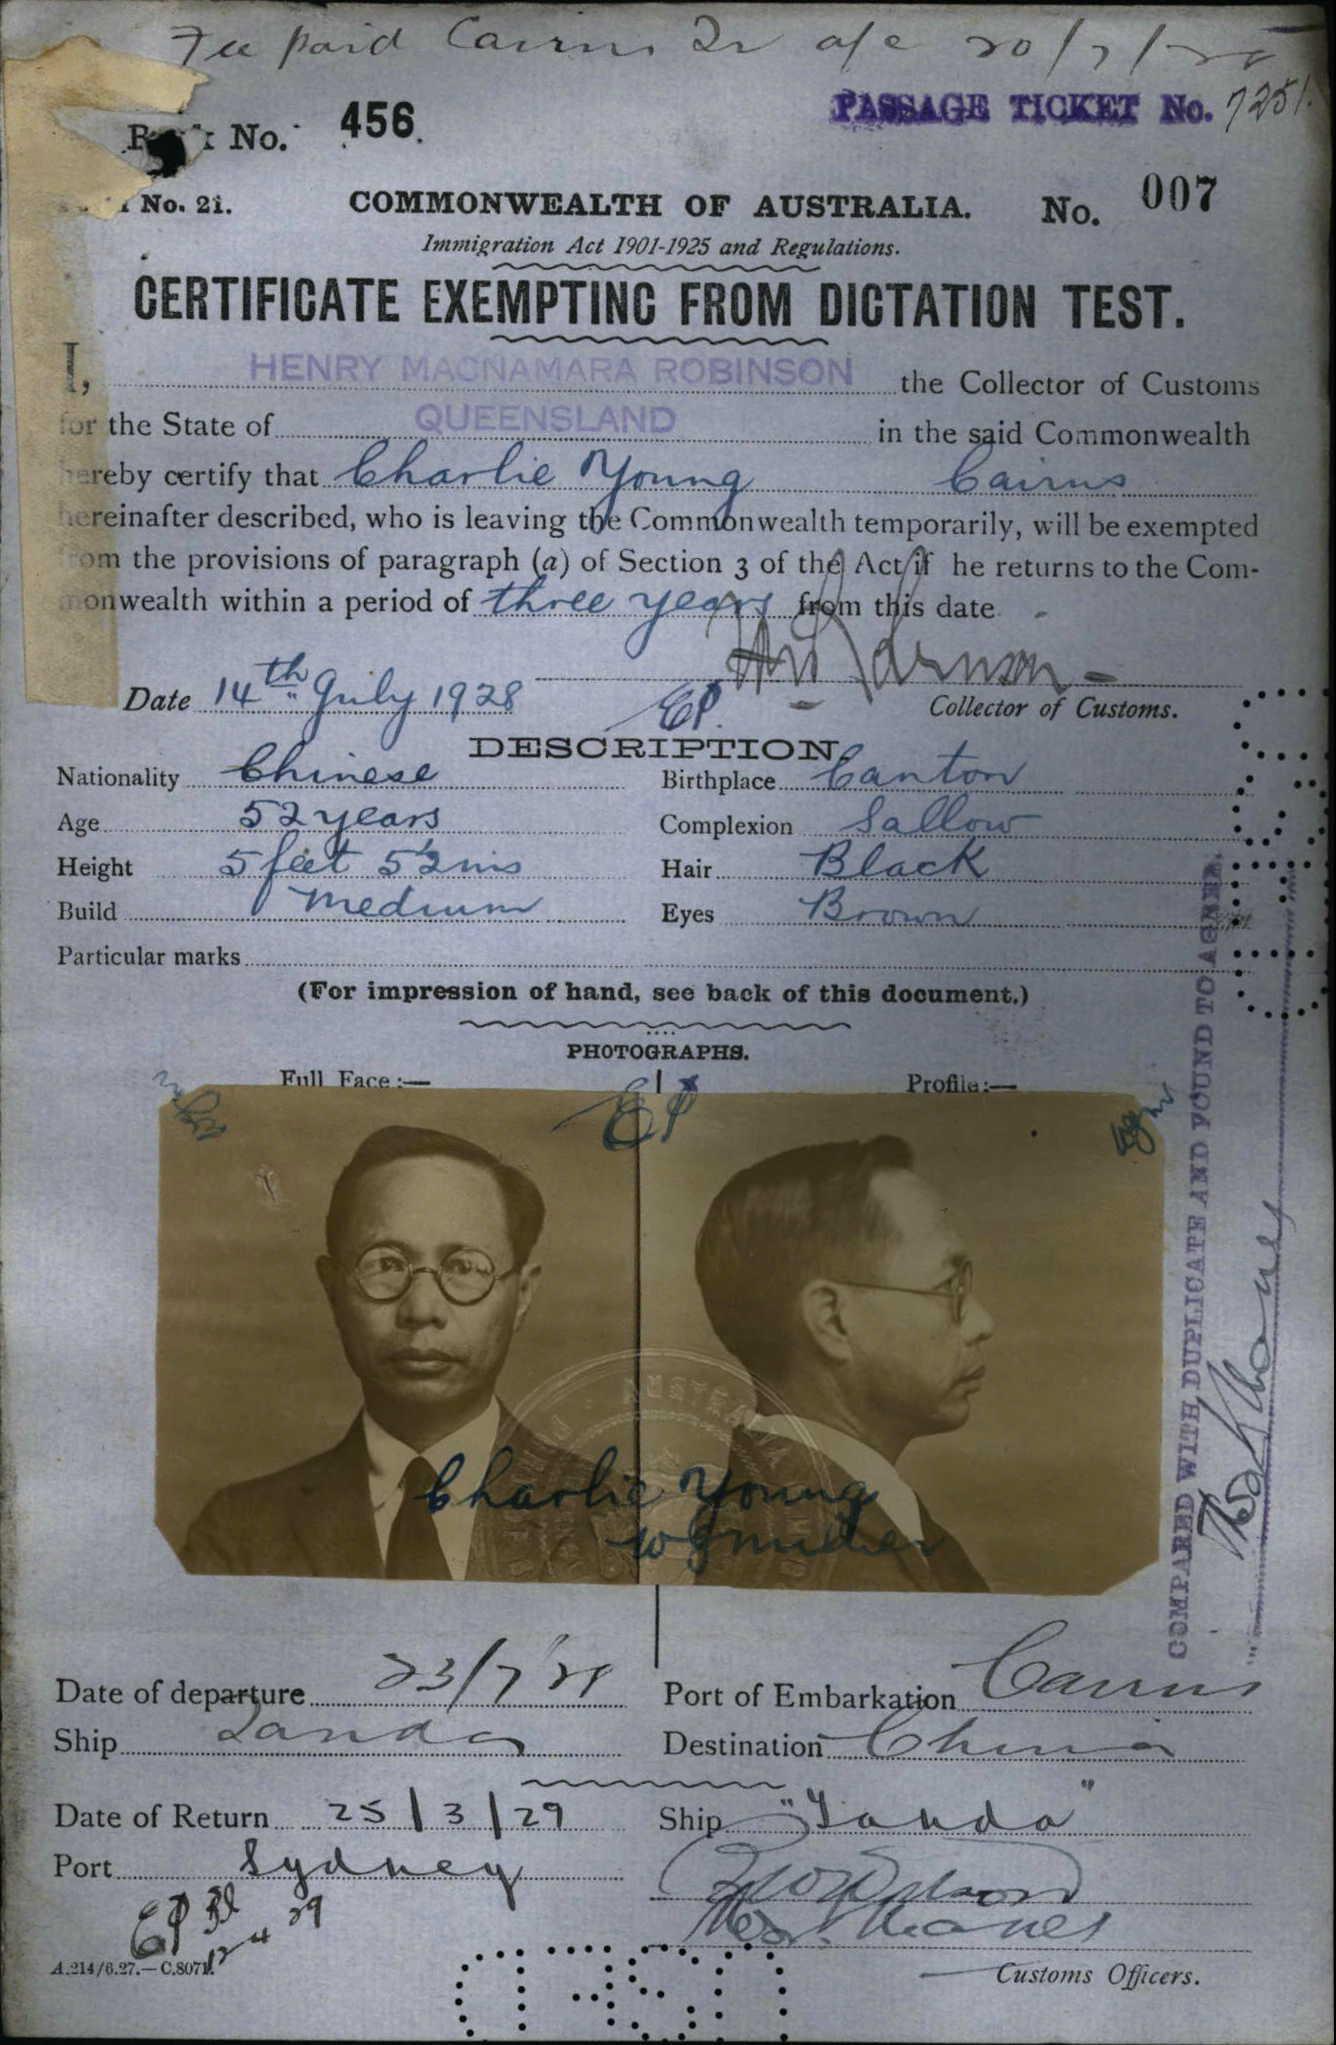 Fee paid Cairns 2r a/c 20/7/28
PASSAGE TICKET No. 7251.
No. 456.
No. 21. COMMONWEALTH OF AUSTRALIA. No. 007
Immigration Act 1901-1925 and Regulations.
CERTIFICATE EXEMPTING FROM DICTATION TEST.
I, HENRY MACNAMARA ROBINSON the Collector of Customs
for the State of QUEENSLAND in the said Commonwealth
hereby certify that Charlie Young Cairns
hereinafter described, who is leaving the Commonwealth temporarily, will be exempted
from the provisions of paragraph (a) of Section 3 of the Act if he returns to the Com-
monwealth within a period of three years from this date
Date 14th July 1928 EP. Collector of Customs.
DESCRIPTION
Nationality Chinese Birthplace Canton
Age 52 years Complexion Sallow
Height 5 feet 5½ ins Hair Black
Build Medium Eyes Brown
Particular marks
(For impression of hand, see back of this document.)
PHOTOGRAPHS.
Full Face:— Profile:—
EP
Charlie Young
COMPARED WITH DUPLICATE AND FOUND TO AGREE.
Date of departure 23/7/28 Port of Embarkation Cairns
Ship Tanda Destination China
Date of Return 25/3/29 Ship "Tanda"
Port Sydney
EP
12 4 29
A.214/6.27.—C.8071.
Customs Officers.